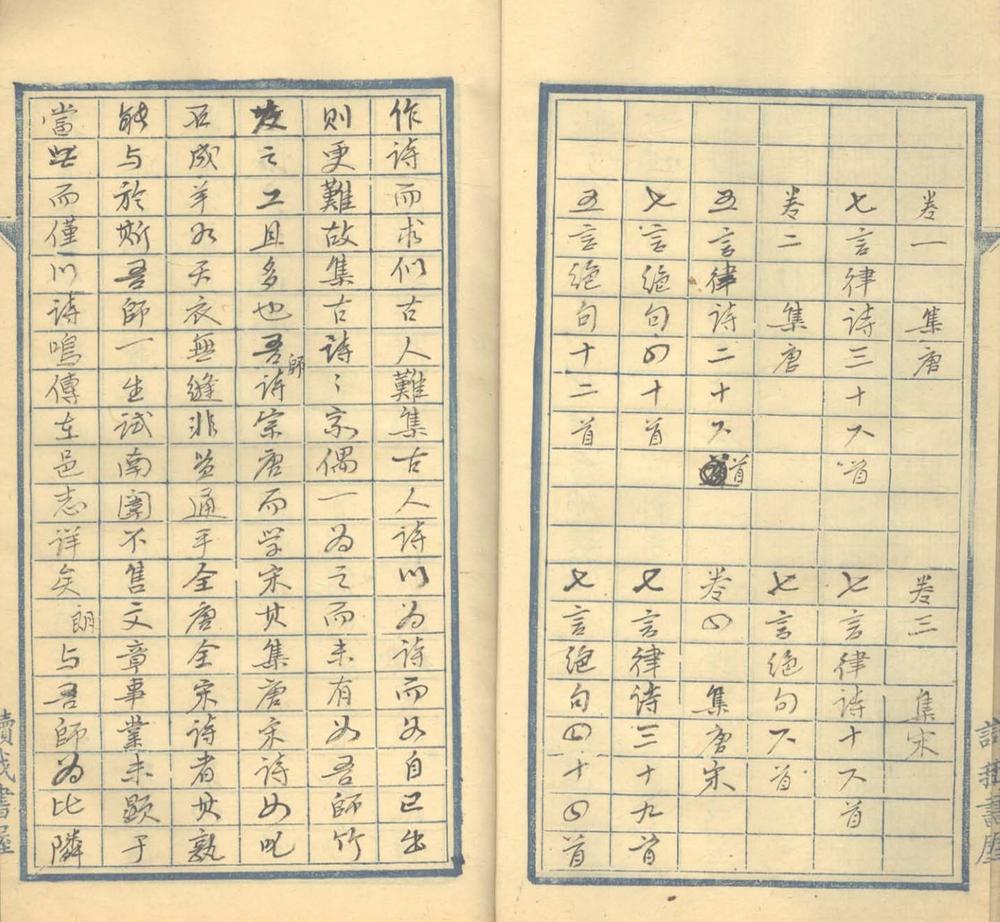 卷一　集唐
七言律詩三十六首
卷二　集唐
五言律詩二十六首
七言絕句四十首
五言絕句十二首
卷三　集宋
七言律詩十六首
七言絕句六首
卷四　集唐宋
七言律詩三十九首
七言絕句四十四首
作詩而求似古人難集古人詩以為詩而如自己出
則更難故集古詩〻家偶一為之而未有如吾師竹
坡之工且多也吾師詩宗唐而学宋其集唐宋詩如叱
石成羊如天衣無縫非貫通乎全唐全宋詩者其孰
能与於斯吾師一生試南闈不售文章事業未顯于
當世而僅以詩鳴傳在邑志詳矣朗与吾師為比隣